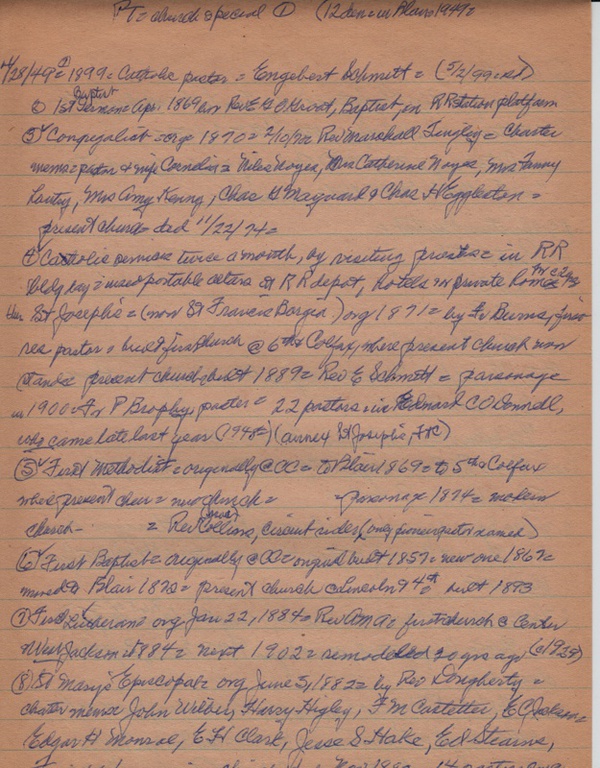 PT = church special ① (12 den in Blair 1949 =
4/28/49 = 1899 = Catholic pastor = Engebert Schmitt = (5/2/99
② 1st Baptist Sermon = Apr. 1869 by Rev E G O Groat, Baptist, on RR Station platform
③ Congregationalist = org 1870 = 2/10/70 = Rev Marshall Tingley = Charter
mems = pastor & wife Cornelia = Miles Noyes, Mrs Catherine Noyes, Mrs Fanny
Lantry, Mrs Amy Kenny, Chas G Maynard & Chas H Eggleston =
present church = ded 11/22/74 =
④ Catholic services twice a month, by visiting priests = in RR
bldg = used portable altars at RR depot, hotels or private homes
then St Joseph's = (now St Francis Borgia) org 1871 = by Fr Burns, first
res pastor = built first church @ 6th & Colfax, where present church now
stands = present church built 1889 = Rev E Schmitt = parsonage
in 1900 = Fr P Brophy, pastor = 22 pastors = Edmark C O'Donnell,
who came late last year (1948 =) (annex St Joseph's, FtC)
⑤ First Methodist = originally @ CC = to Blair 1869 = to 5th & Colfax
where present church = new church = parsonage 1874 = modern
church - = Rev Collins, circuit rider, (only pioneer pastor named)
⑥ First Baptist = originally @ CC = original built 1857 = new one 1867 =
moved to Blair 1870 = present church @ Lincoln & 4th = built 1893
⑦ First Lutheran = org Jan 22, 1884 = Rev = first church @ Center
& West Jackson 1884 = next 1902 = remodelled 20 yrs ago (c 1929)
⑧ St Mary's Episcopal = org June 5, 1882 = by Rev Dougherty =
charter mems = John Wilber, Harry Higley, F M Castetter, E C Jackson,
Edgar H Monroe, E H Clark, Jesse S Hake, Ed Stearns,